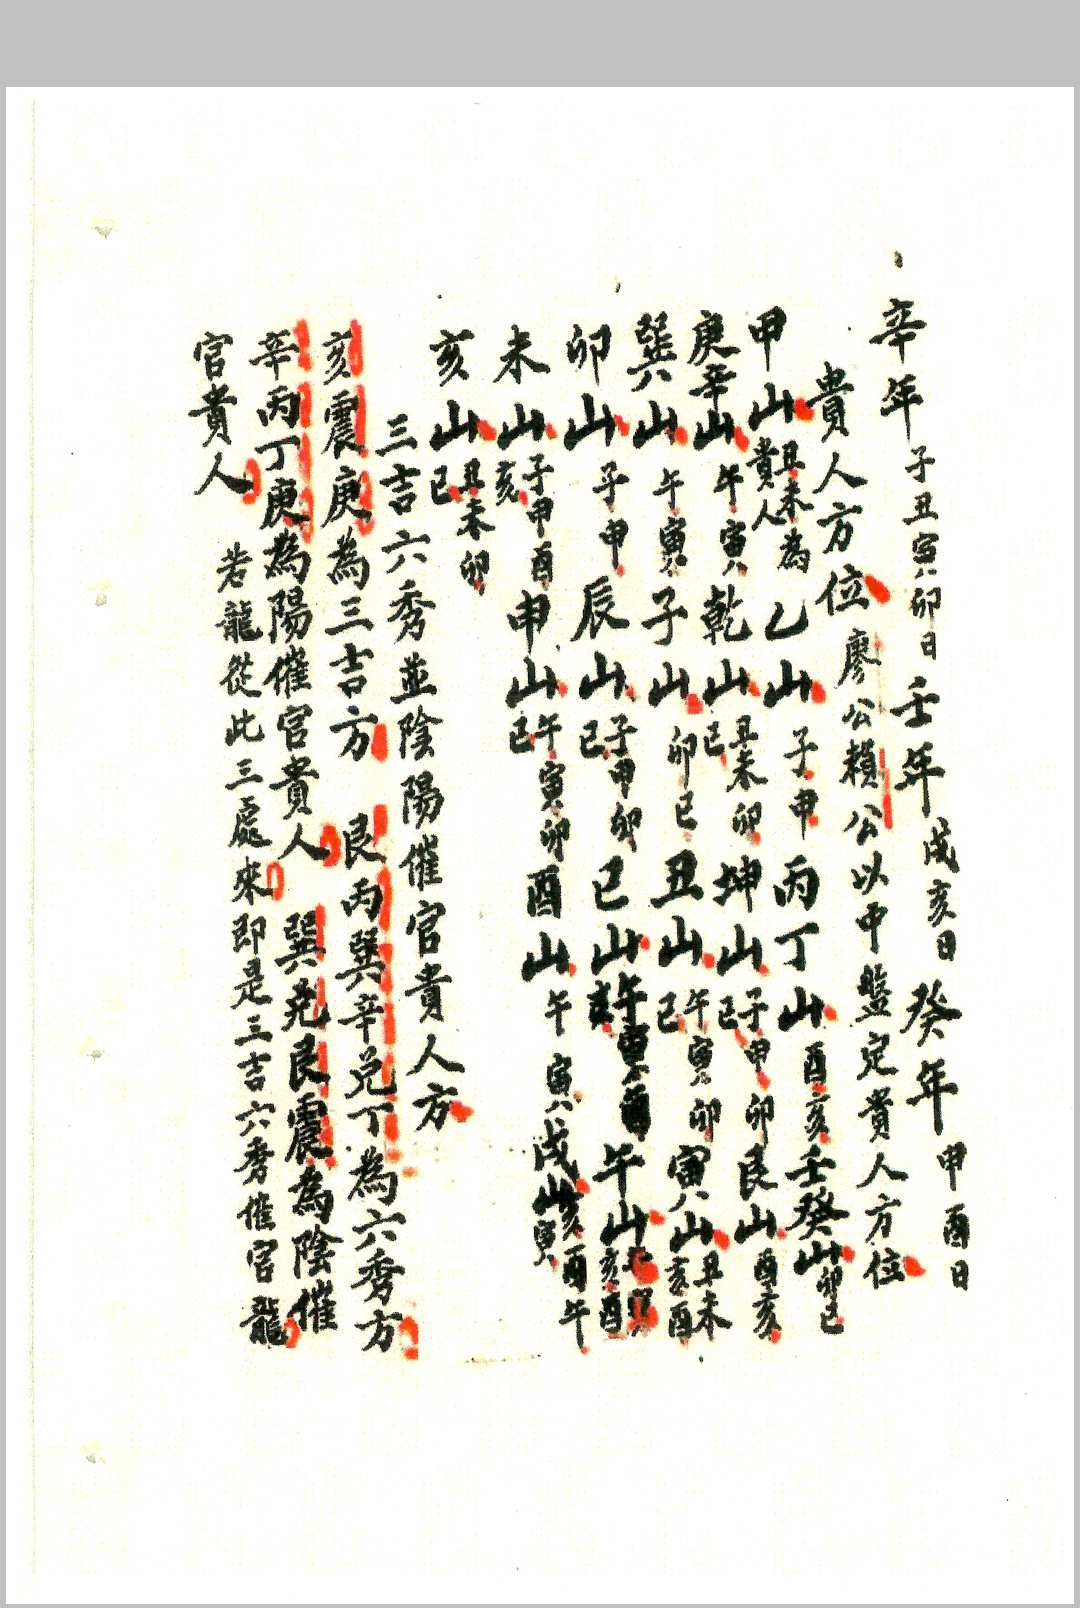 辛年子丑寅卯日壬年戌亥日癸年甲酉日
貴人方位廖公賴公以中盤定貴人方位
甲山丑未為貴人乙山子申丙丁山酉亥壬癸山卯巳
庚辛山午寅乾山丑未卯巳坤山子申卯巳艮山酉亥
巽山午寅子山卯巳丑山午寅卯巳寅山丑未亥酉
卯山子申辰山子申卯巳巳山午寅酉午山亥酉
未山子申酉亥申山午寅卯巳酉山午寅戌山亥酉午寅
亥山丑未卯巳
三吉六秀並陰陽催官貴人方
亥震庚為三吉方 艮丙巽辛兌丁為六秀方
辛丙丁庚為陽催官貴人 巽兌艮震為陰催
官貴人 若龍從此三處來即是三吉六秀催官龍